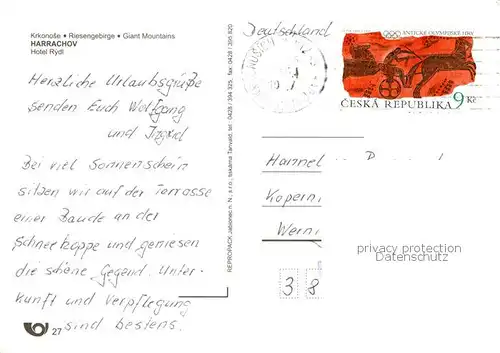 Krkonoše • Riesengebirge • Giant Mountains
HARRACHOV
Hotel Rýdl
Herzliche Urlaubsgrüße
senden Euch Wolfgang
und Ingrid
Bei viel Sonnenschein
sitzen wir auf der Terrasse
einer Baude an der
Schneekoppe und geniesen
die schöne Gegend. Unter-
kunft und Verpflegung
sind bestens.
27
REPROPACK Jablonec n. N., s.r.o., tiskárna Tanvald, tel.: 0428 / 394 325, fax: 0428 / 395 820
(Deutschland)
ANTICKÉ OLYMPIJSKÉ HRY
ČESKÁ REPUBLIKA 9 Kč
Hannel D
Koperni
Werni
38
privacy protection
Datenschutz